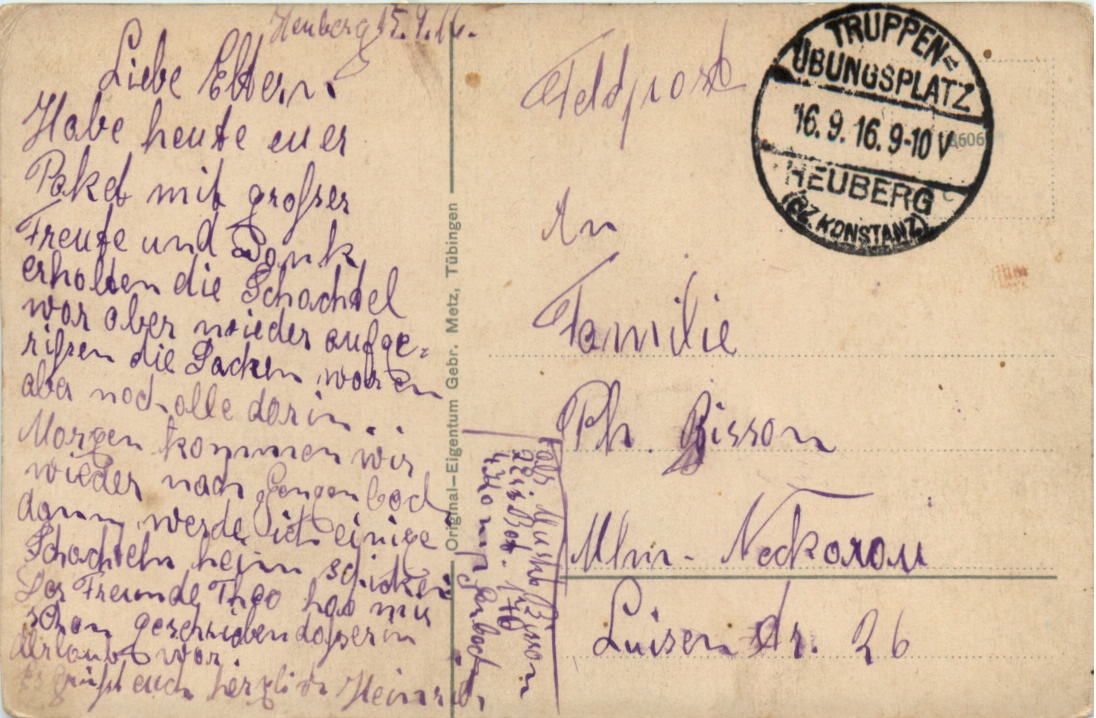 Heuberg 15.9.16.
Liebe Eltern.
Habe heute euer
Paket mit großer
Freute und Dank
erholten die Schachtel
war aber wieder aufge=
rißen die Sacken waren
aber noch alle darin..
Morgen kommen wir
wieder nach Gengenbach
dann werde ich einige
Schachteln heim schicken
Der Freunde Theo hat mir
schon geschrieben daß er in
Urlaub war.
Es grüßt euch herzlich Heinrich
Original-Eigentum Gebr. Metz, Tübingen
Bisson
170
Feldpost
TRUPPEN=
ÜBUNGSPLATZ
16.9.16.9-10V
HEUBERG
(BZ. KONSTANZ)
An
Familie
Ph. Bisson
Mhm - Neckarau
Luisenstr. 26